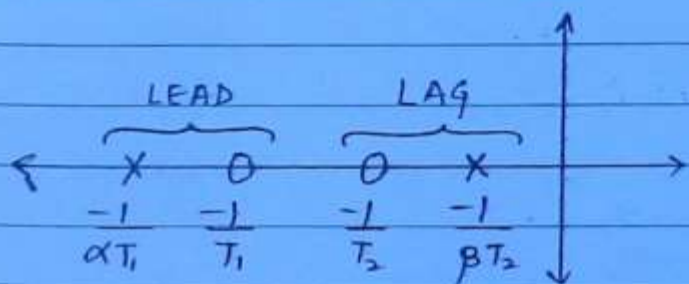 LEAD LAG
X O O X
-1/αT₁ -1/T₁ -1/T₂ -1/βT₂